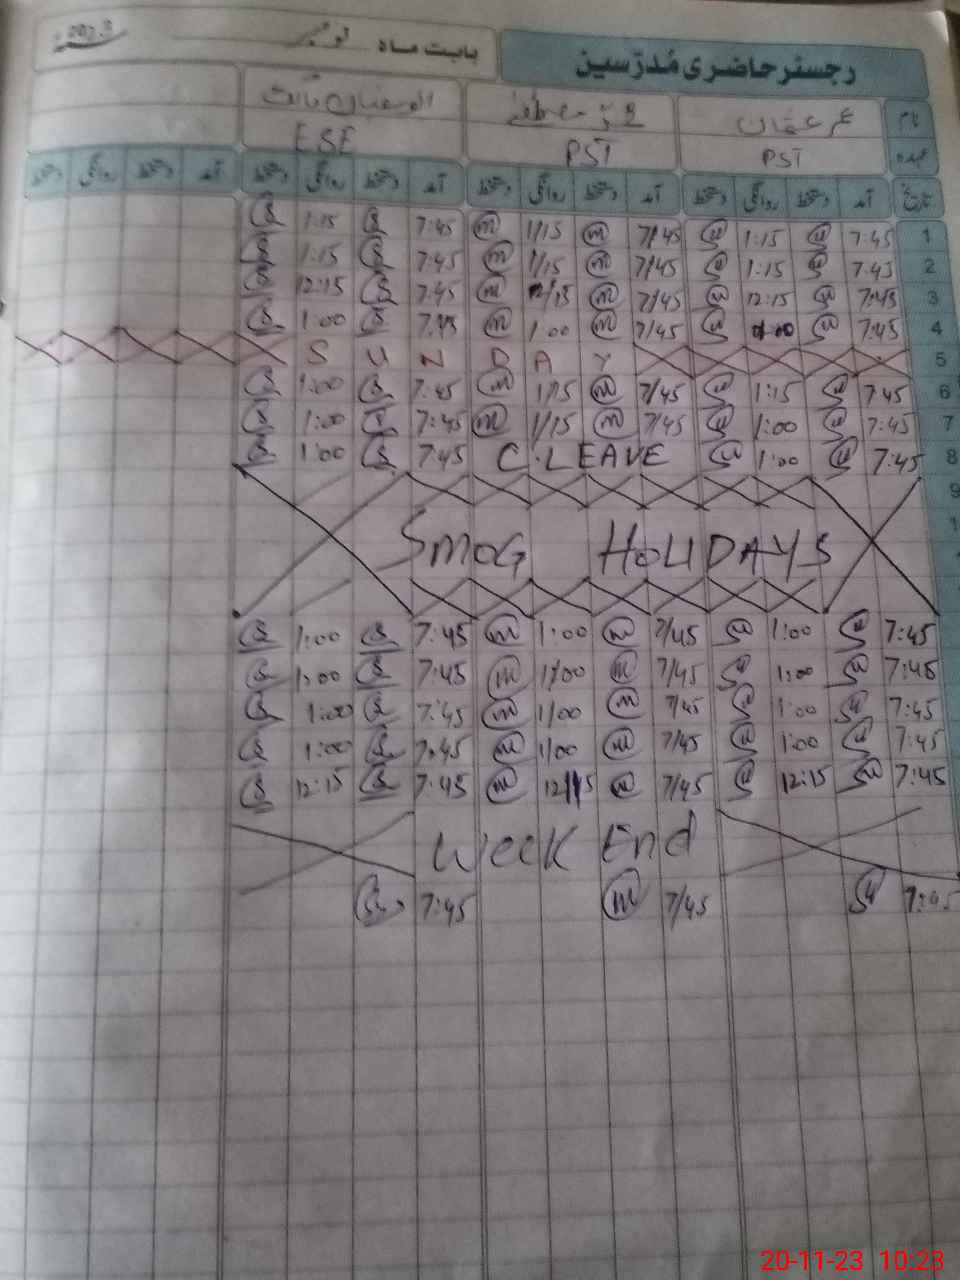 رجسٹر حاضری مدرسین بابت ماہ نومبر 2023
نام عمر عثمان
عہدہ PST PST ESE
تاریخ آمد دستخط روانگی دستخط آمد دستخط روانگی دستخط آمد دستخط روانگی دستخط آمد دستخط روانگی دستخط
1:15 7:45 1/15 7/45 1:15 7:45 1
1:15 7:45 1/15 7/45 1:15 7:45 2
12:15 7:45 12/15 7/45 12:15 7:45 3
1:00 7:45 1:00 7/45 1:00 7:45 4
SUNDAY 5
1:00 7:45 1/15 7/45 1:15 7:45 6
1:00 7:45 1/15 7/45 1:00 7:45 7
1:00 7:45 C.LEAVE 1:00 7:45 8
9
SMOG HOLIDAYS
1:00 7:45 1:00 7/45 1:00 7:45
1:00 7:45 1/00 7/45 1:00 7:45
1:00 7:45 1/00 7/45 1:00 7:45
1:00 7:45 1/00 7/45 1:00 7:45
12:15 7:45 12/15 7/45 12:15 7:45
Week End
7:45 7/45 7:45
20-11-23 10:23